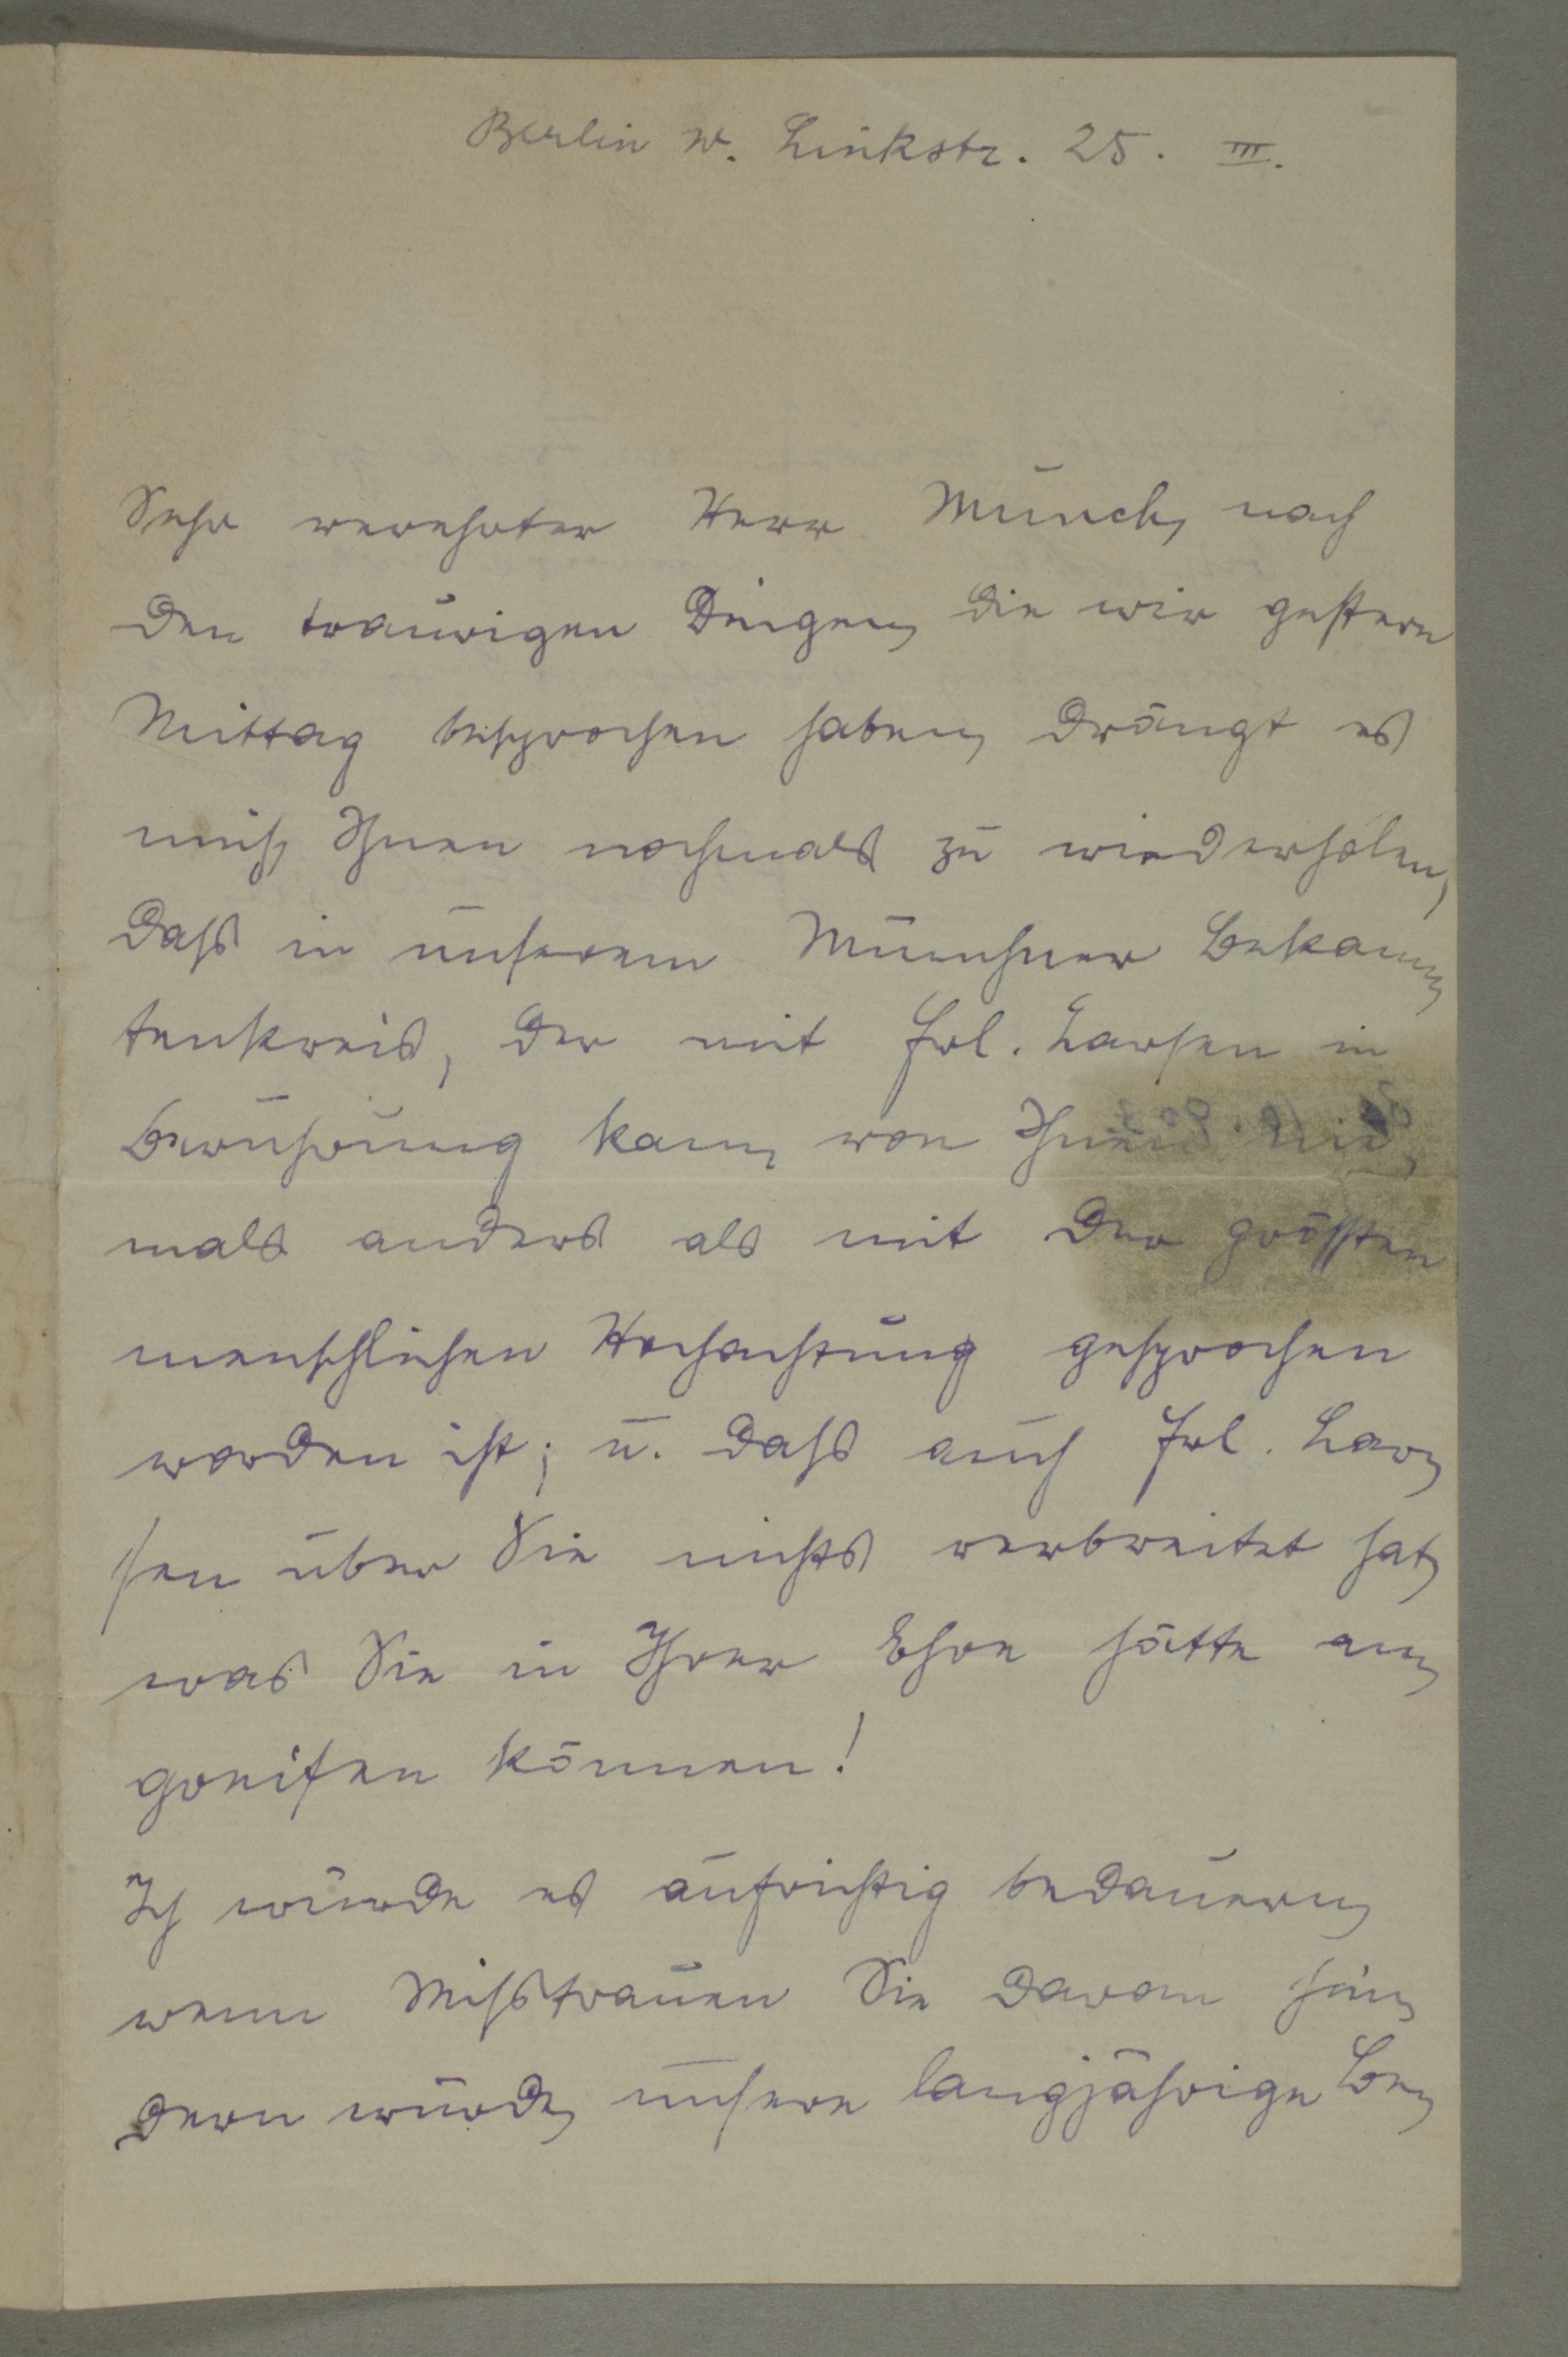 Berlin W. Linkstr. 25. III.
Sehr verehrter Herr Munch, nach
den traurigen Dingen, die wir gestern
Mittag besprochen haben, drängt es
mich, Ihnen nochmals zu wiederholen,
dass in unserem Münchner Bekann-
tenkreis, der mit Frl. Larsen in
Berührung kam, von Ihnen nie-
mals anders als mit der grössten
menschlichen Hochachtung gesprochen
worden ist; u. dass auch Frl. Lar-
sen über Sie nichts verbreitet hat,
was Sie in Ihrer Ehre hätte an-
greifen können!
Ich würde es aufrichtig bedauern,
wenn Misstrauen Sie daran hin-
dern würde, unsere langjährige Be-